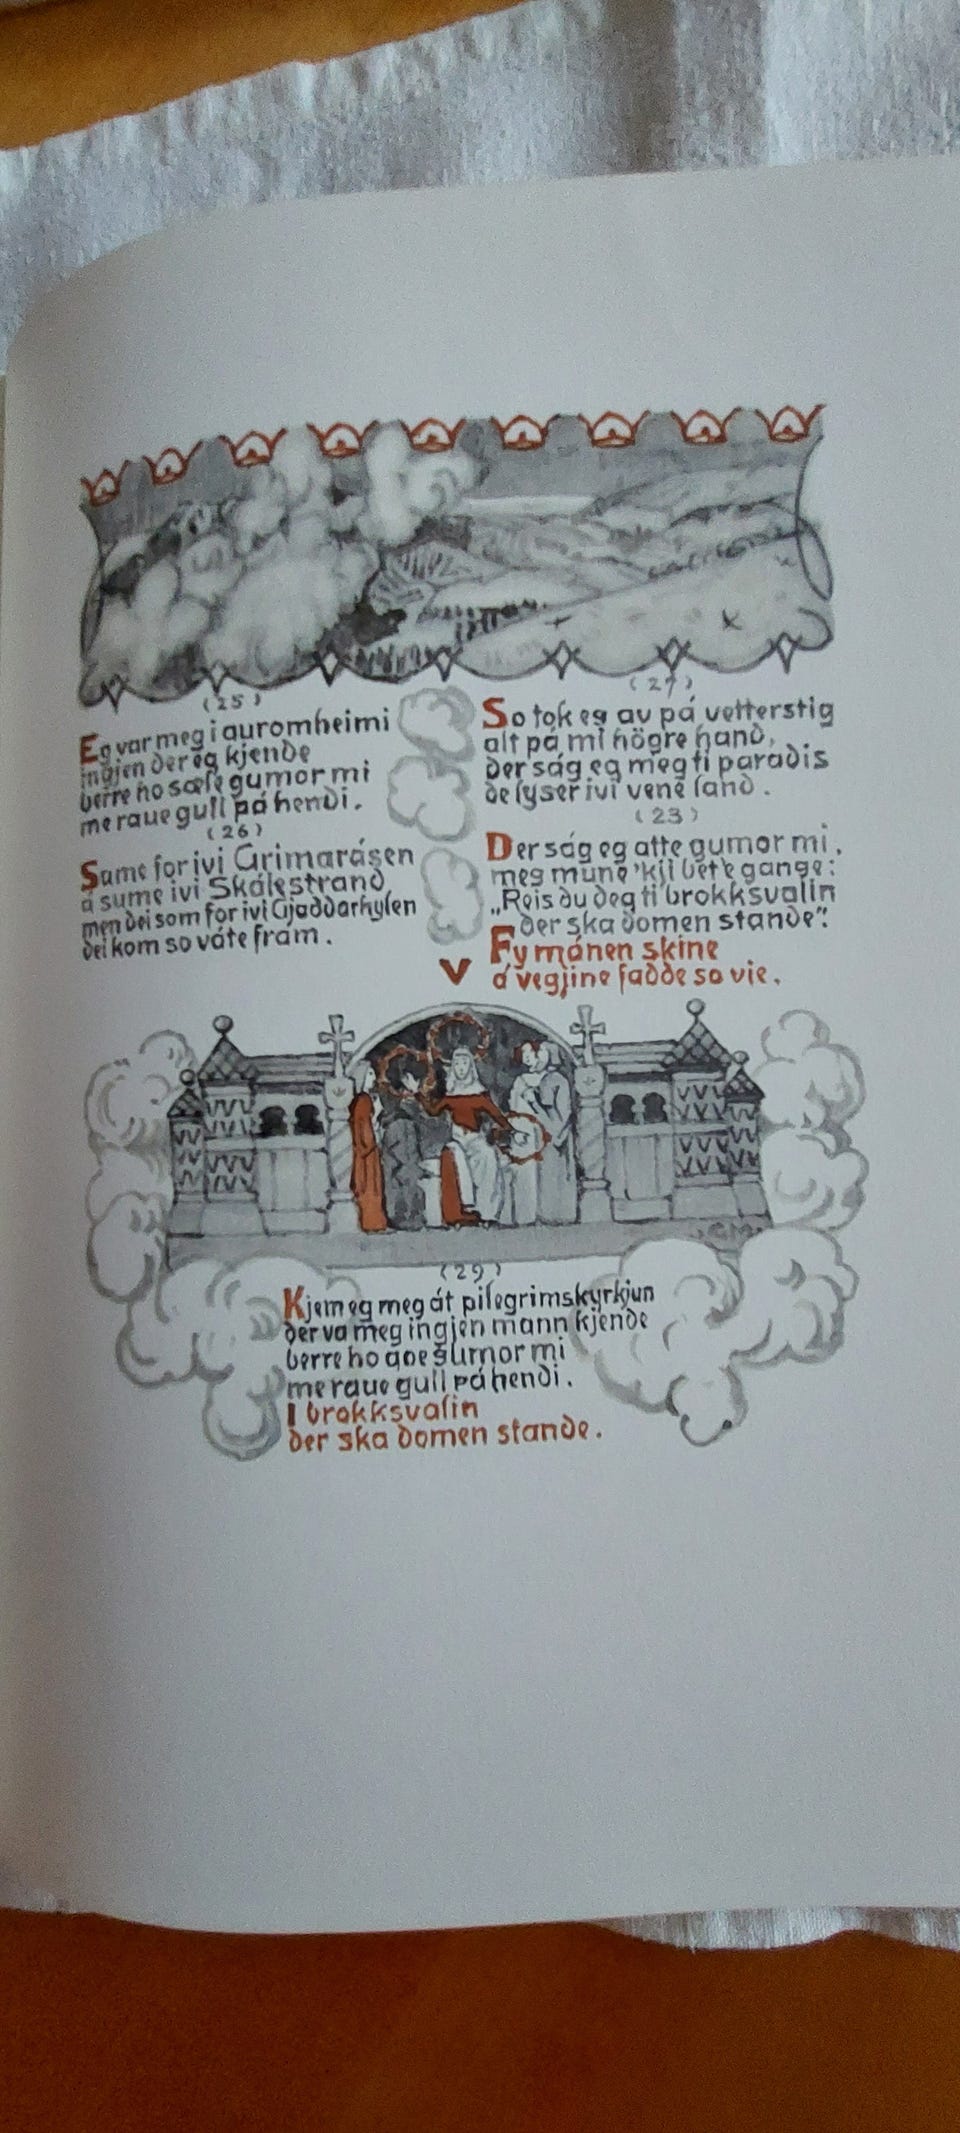 (25)
Eg var meg i auromheimi
ingjen der eg kjende
berre ho sæle gumor mi
me raue gull på hendi.
(26)
Sume for ivi Grimaråsen
å sume ivi Skålestrand,
men dei som for ivi Gjaddarhylen
dei kom so våte fram.
(27)
So tok eg av på vetterstig
alt på mi högre hand,
der såg eg meg ti paradis
de lyser ivi vene land.
(23)
Der såg eg atte gumor mi,
meg mune 'kji bet'e gange:
„Reis du deg ti brokksvalin
der ska domen stande".
Fy månen skine
å vegjine fadde so vie.
V
(29)
Kjem eg meg åt pilegrimskyrkjun
der va meg ingjen mann kjende
berre ho goe gumor mi
me raue gull på hendi.
I brokksvalin
der ska domen stande.